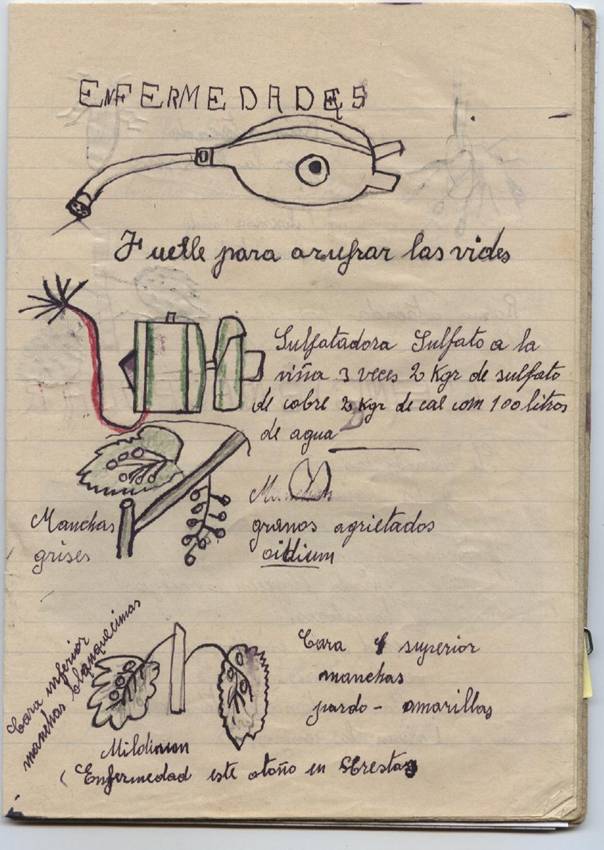 ENFERMEDADES
Fuelle para azufrar las vides
Sulfatadora Sulfato a la
viña 3 veces 2 Kgr de sulfato
de cobre 2 Kgr de cal com 100 litros
de agua
Manchas
grises
granos agrietados
oidium
Cara inferior
manchas blanquecinas
Cara superior
manchas
pardo - amarillas
Mildium
(Enfermedad este otoño en